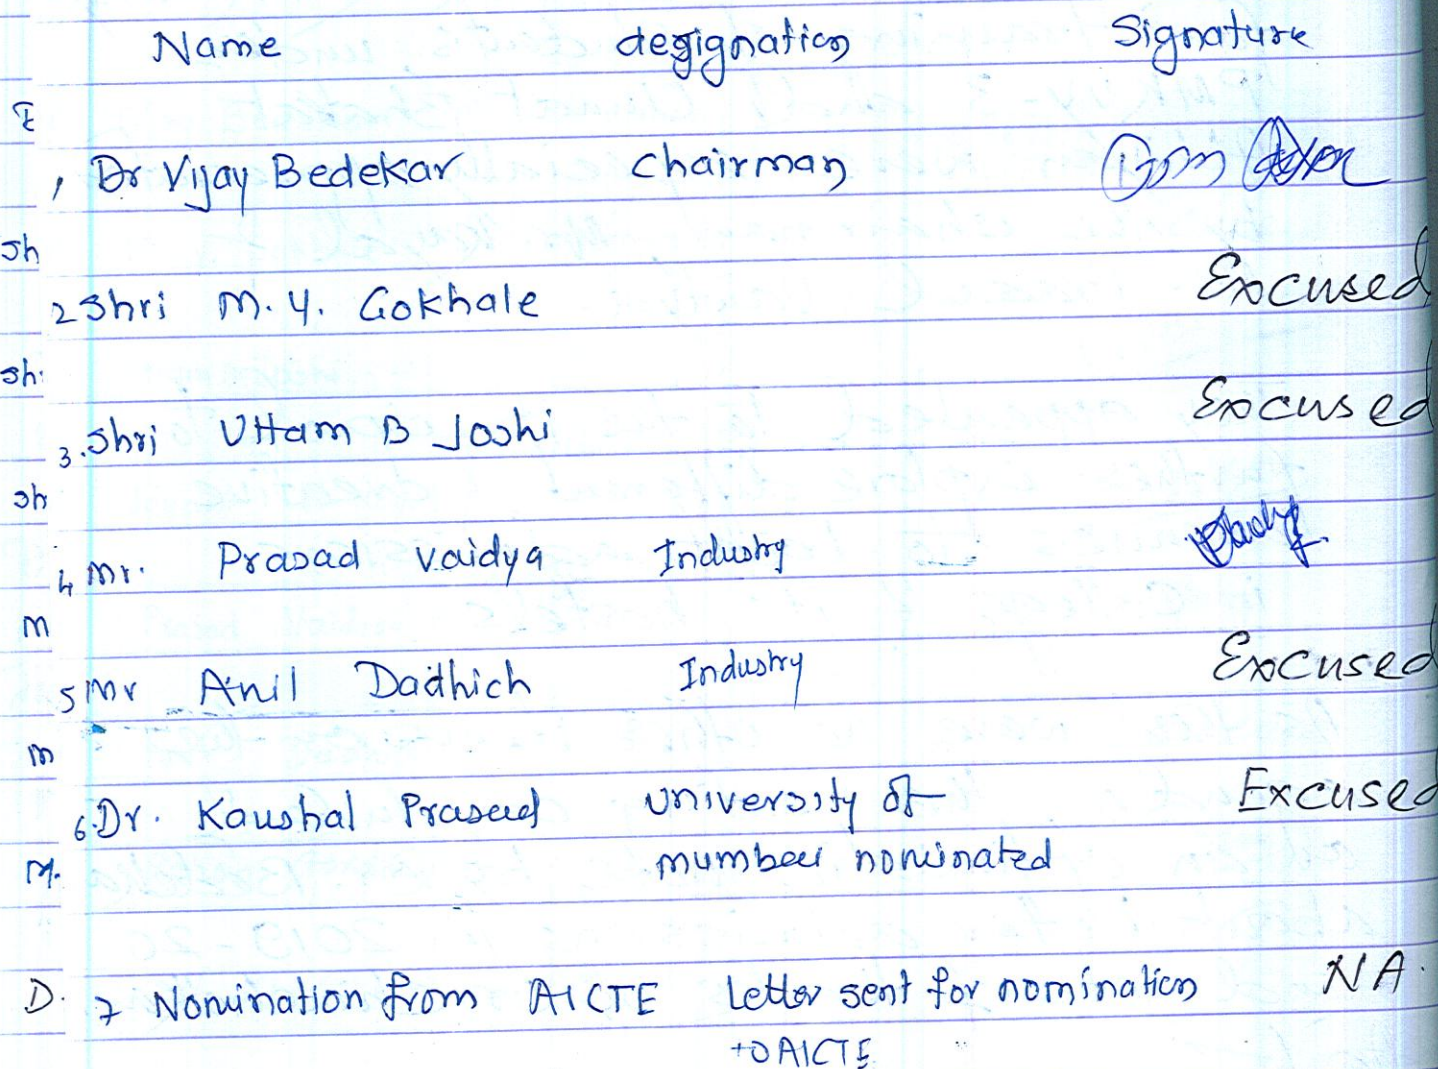 Name degignation Signature
1 Dr Vijay Bedekar Chairman
Sh
2 Shri M. Y. Gokhale Excused
Sh
3. Shri Uttam B Joshi Excused
Sh
4 Mr. Prasad Vaidya Industry
M
5 Mr Anil Dadhich Industry Excused
M
6. Dr. Kaushal Prasad University of Excused
M. mumbai nominated
D. 7 Nomination from AICTE Letter sent for nomination NA.
to AICTE